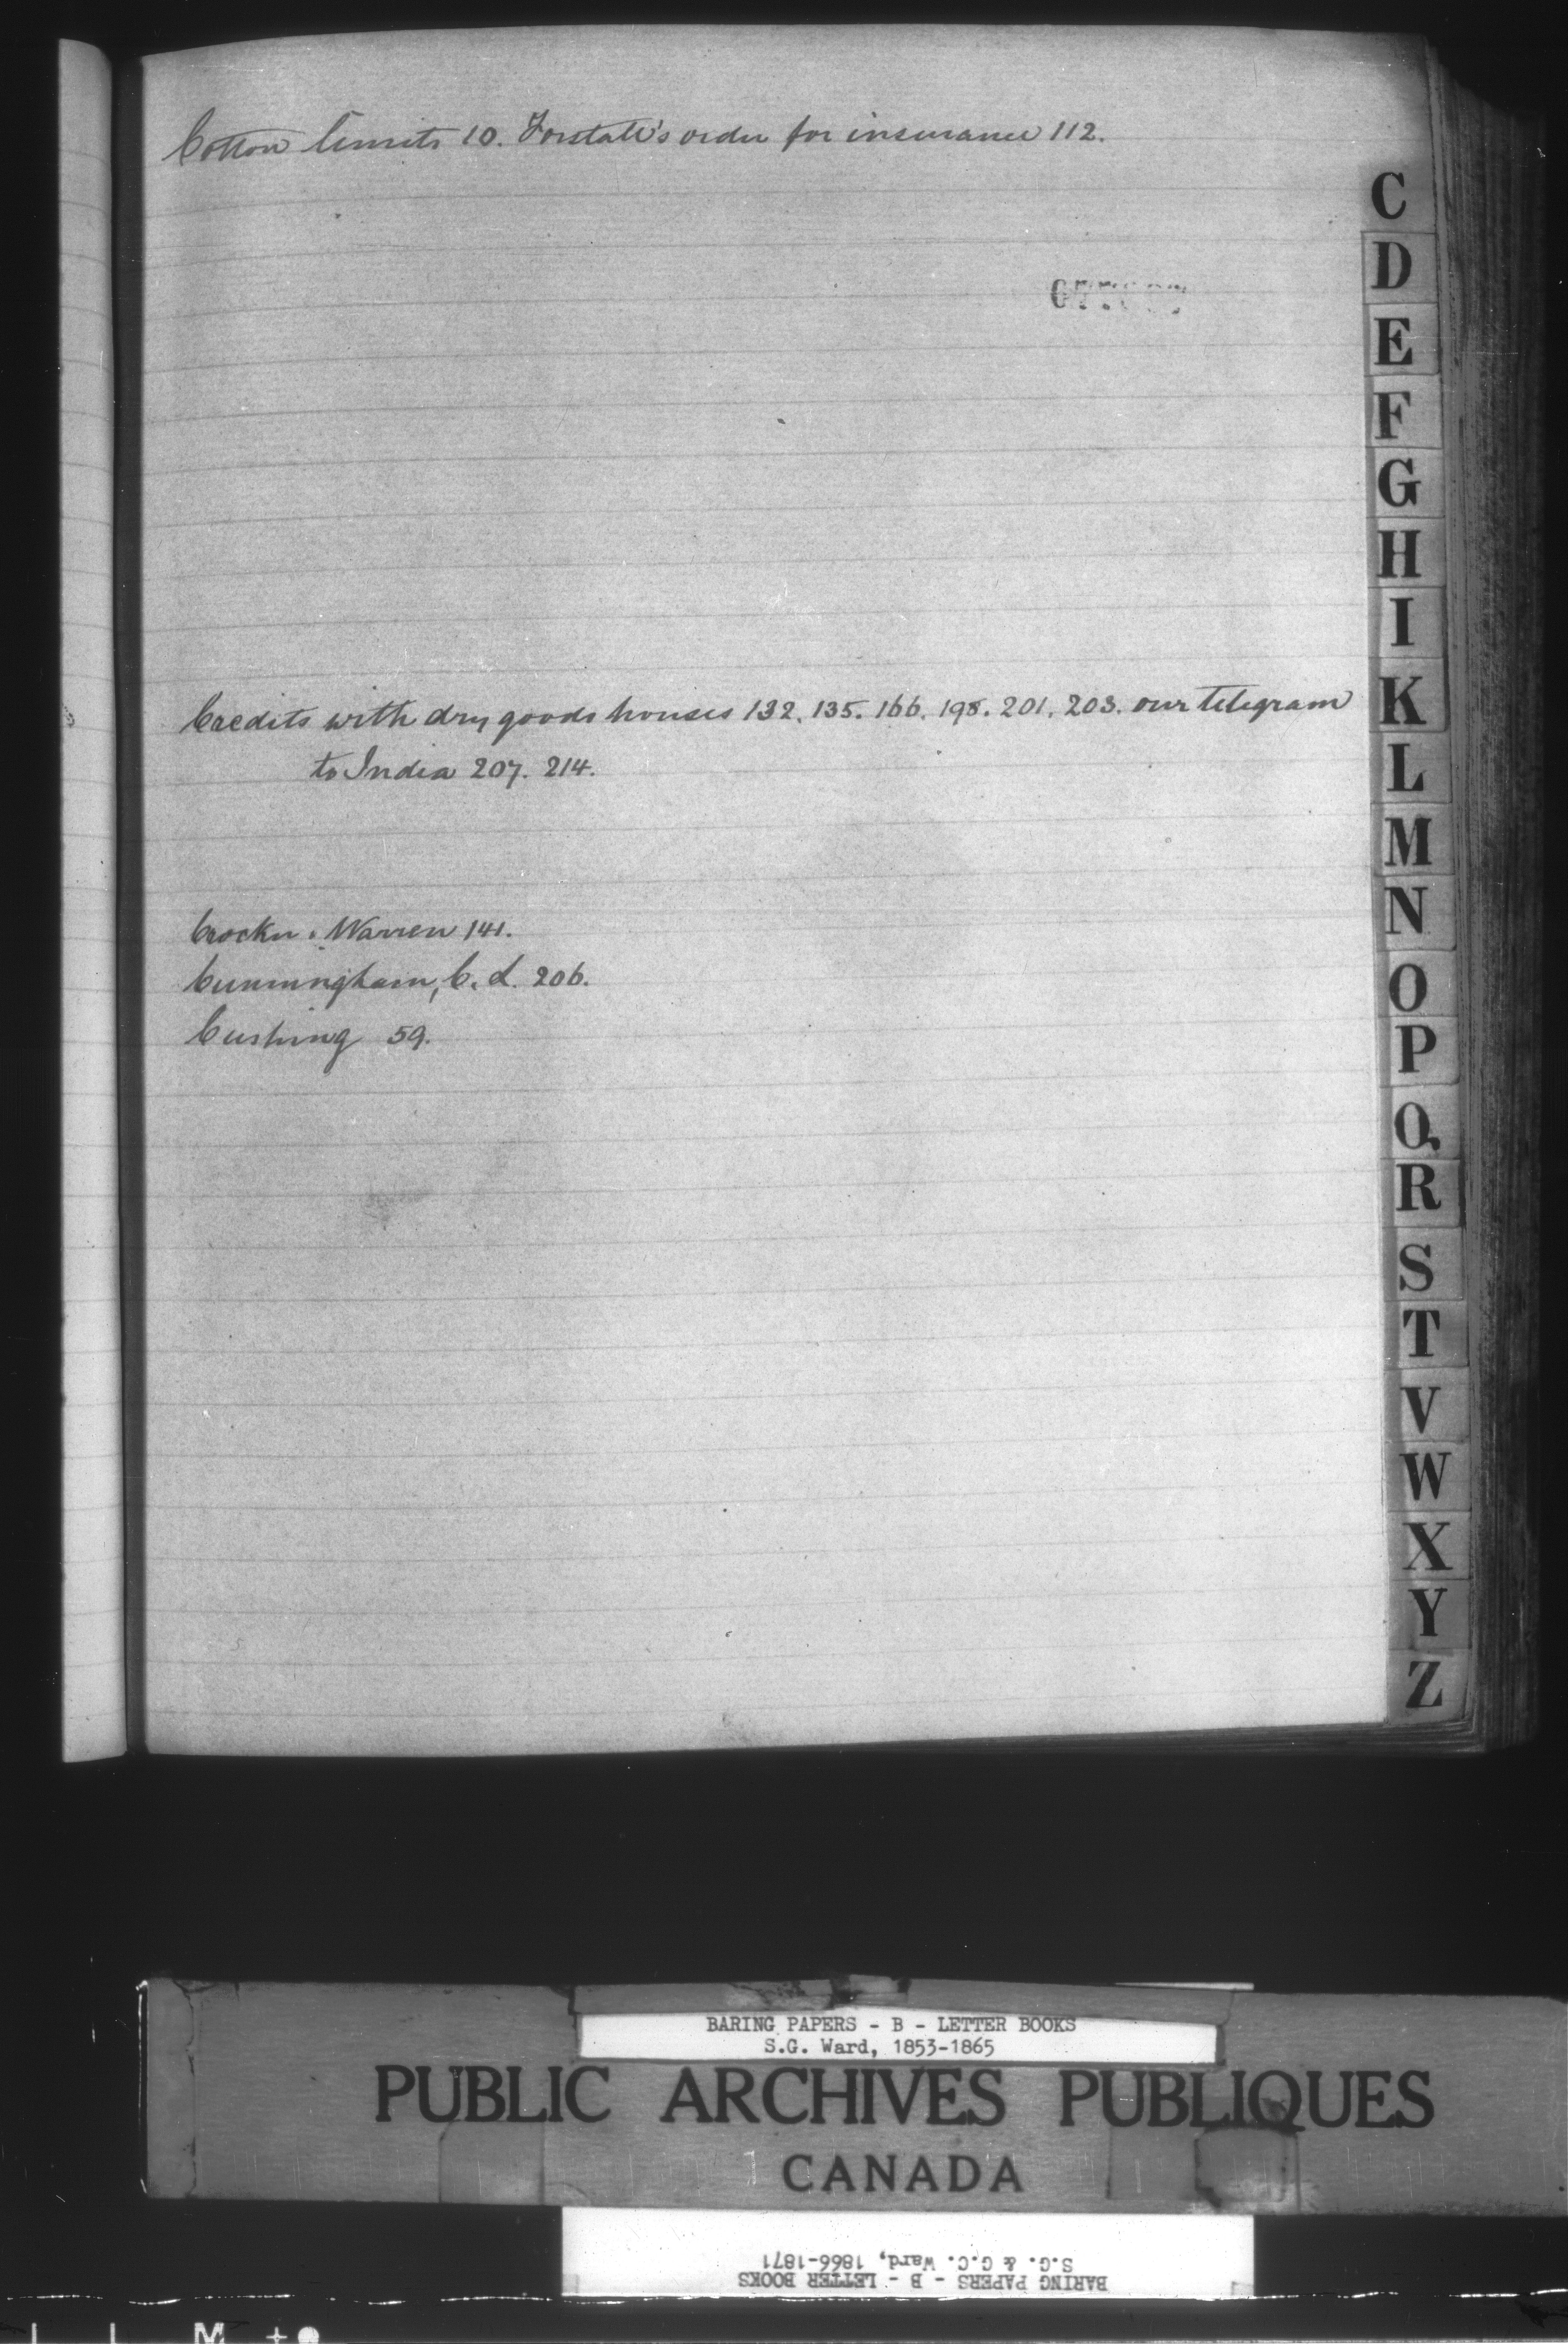 Cotton limits 10. Forstall's order for insurance 112.
Credits with dry goods houses 132. 135. 166. 198. 201. 203. our telegram
to India 207. 214.
Crocker & Warren 141.
Cunningham, C. L. 206.
Cushing 59.
C
D
E
F
G
H
I
K
L
M
N
O
P
Q
R
S
T
V
W
X
Y
Z
BARING PAPERS - B - LETTER BOOKS
S.G. Ward, 1853-1865
PUBLIC ARCHIVES PUBLIQUES
CANADA
BARING PAPERS - B - LETTER BOOKS
S.G. & G.C. Ward, 1866-1871